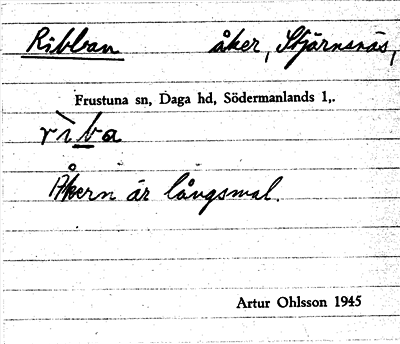 Ribban åker, Stjärnsnäs,
Frustuna sn, Daga hd, Södermanlands l,.
rìba
Åkern är långsmal.
Artur Ohlsson 1945